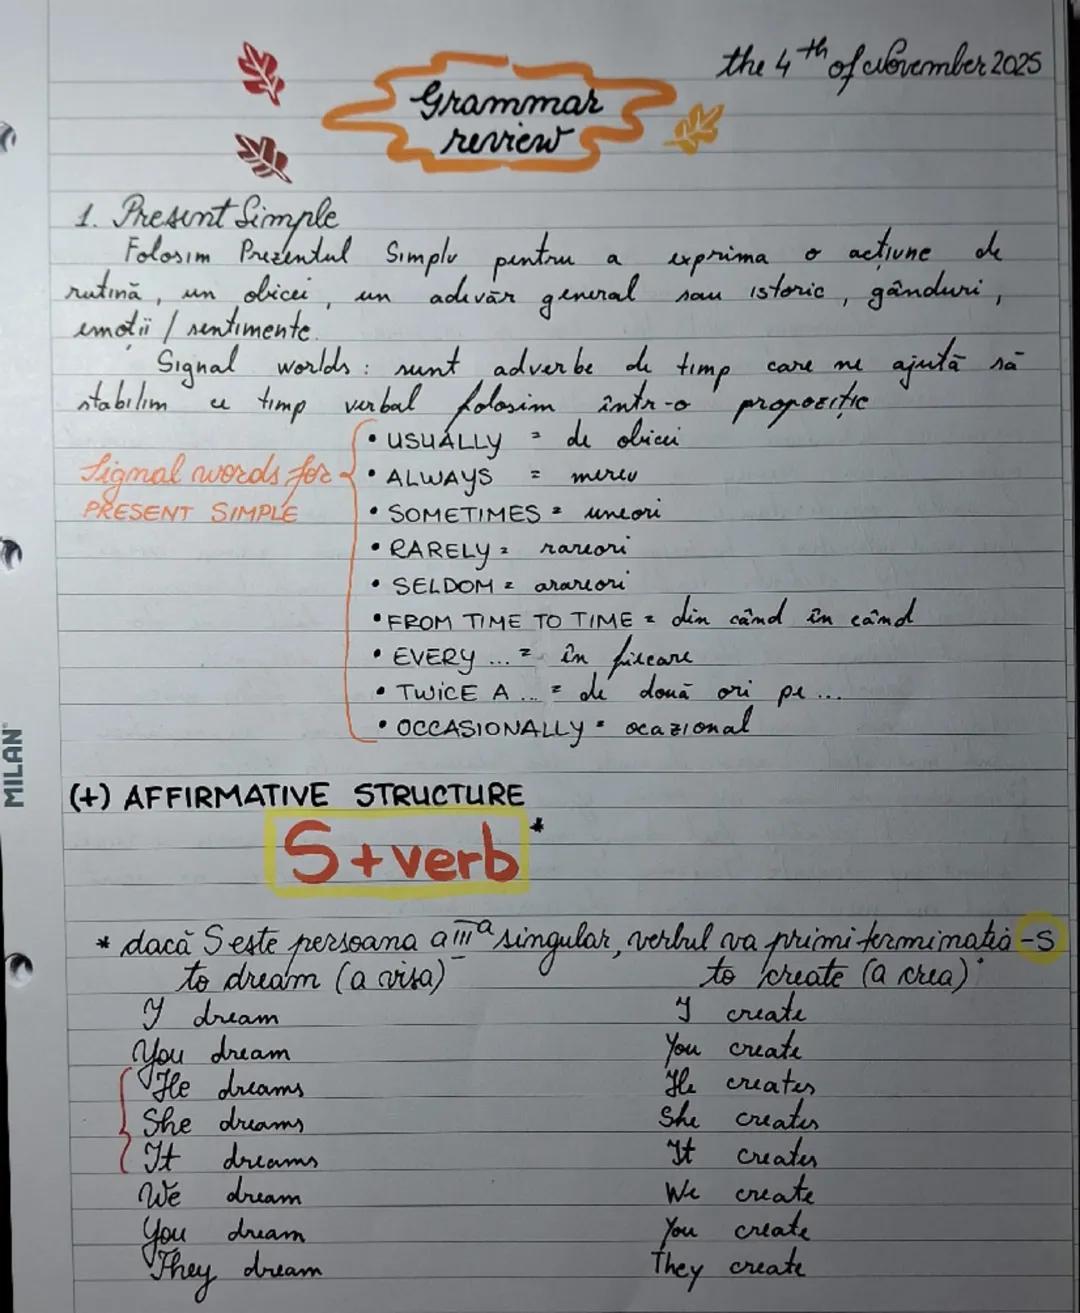 the 4th of November 2025
Grammar
review
1. Present Simple
Folosim Prezentul Simplu pentru a exprima o acțiune de
rutină, un obicei, un adevăr general sau istoric, gânduri,
emoții / sentimente.
Signal worlds: sunt adverbe de timp care ne ajută să
stabilim ce timp verbal folosim într-o propoziție
Signal words for
PRESENT SIMPLE
• USUALLY = de obicei
• ALWAYS = mereu
• SOMETIMES = uneori
• RARELY = rareori
• SELDOM = arareori
• FROM TIME TO TIME = din când în când
• EVERY ... = în fiecare
• TWICE A ... = de două ori pe ...
• OCCASIONALLY = ocazional
MILAN
(+) AFFIRMATIVE STRUCTURE
S+verb*
* dacă S este persoana a IIIa singular, verbul va primi terminația -S
to dream (a visa) to create (a crea)
I dream I create
You dream You create
He dreams He creates
She dreams She creates
It dreams It creates
We dream We create
You dream You create
They dream They create